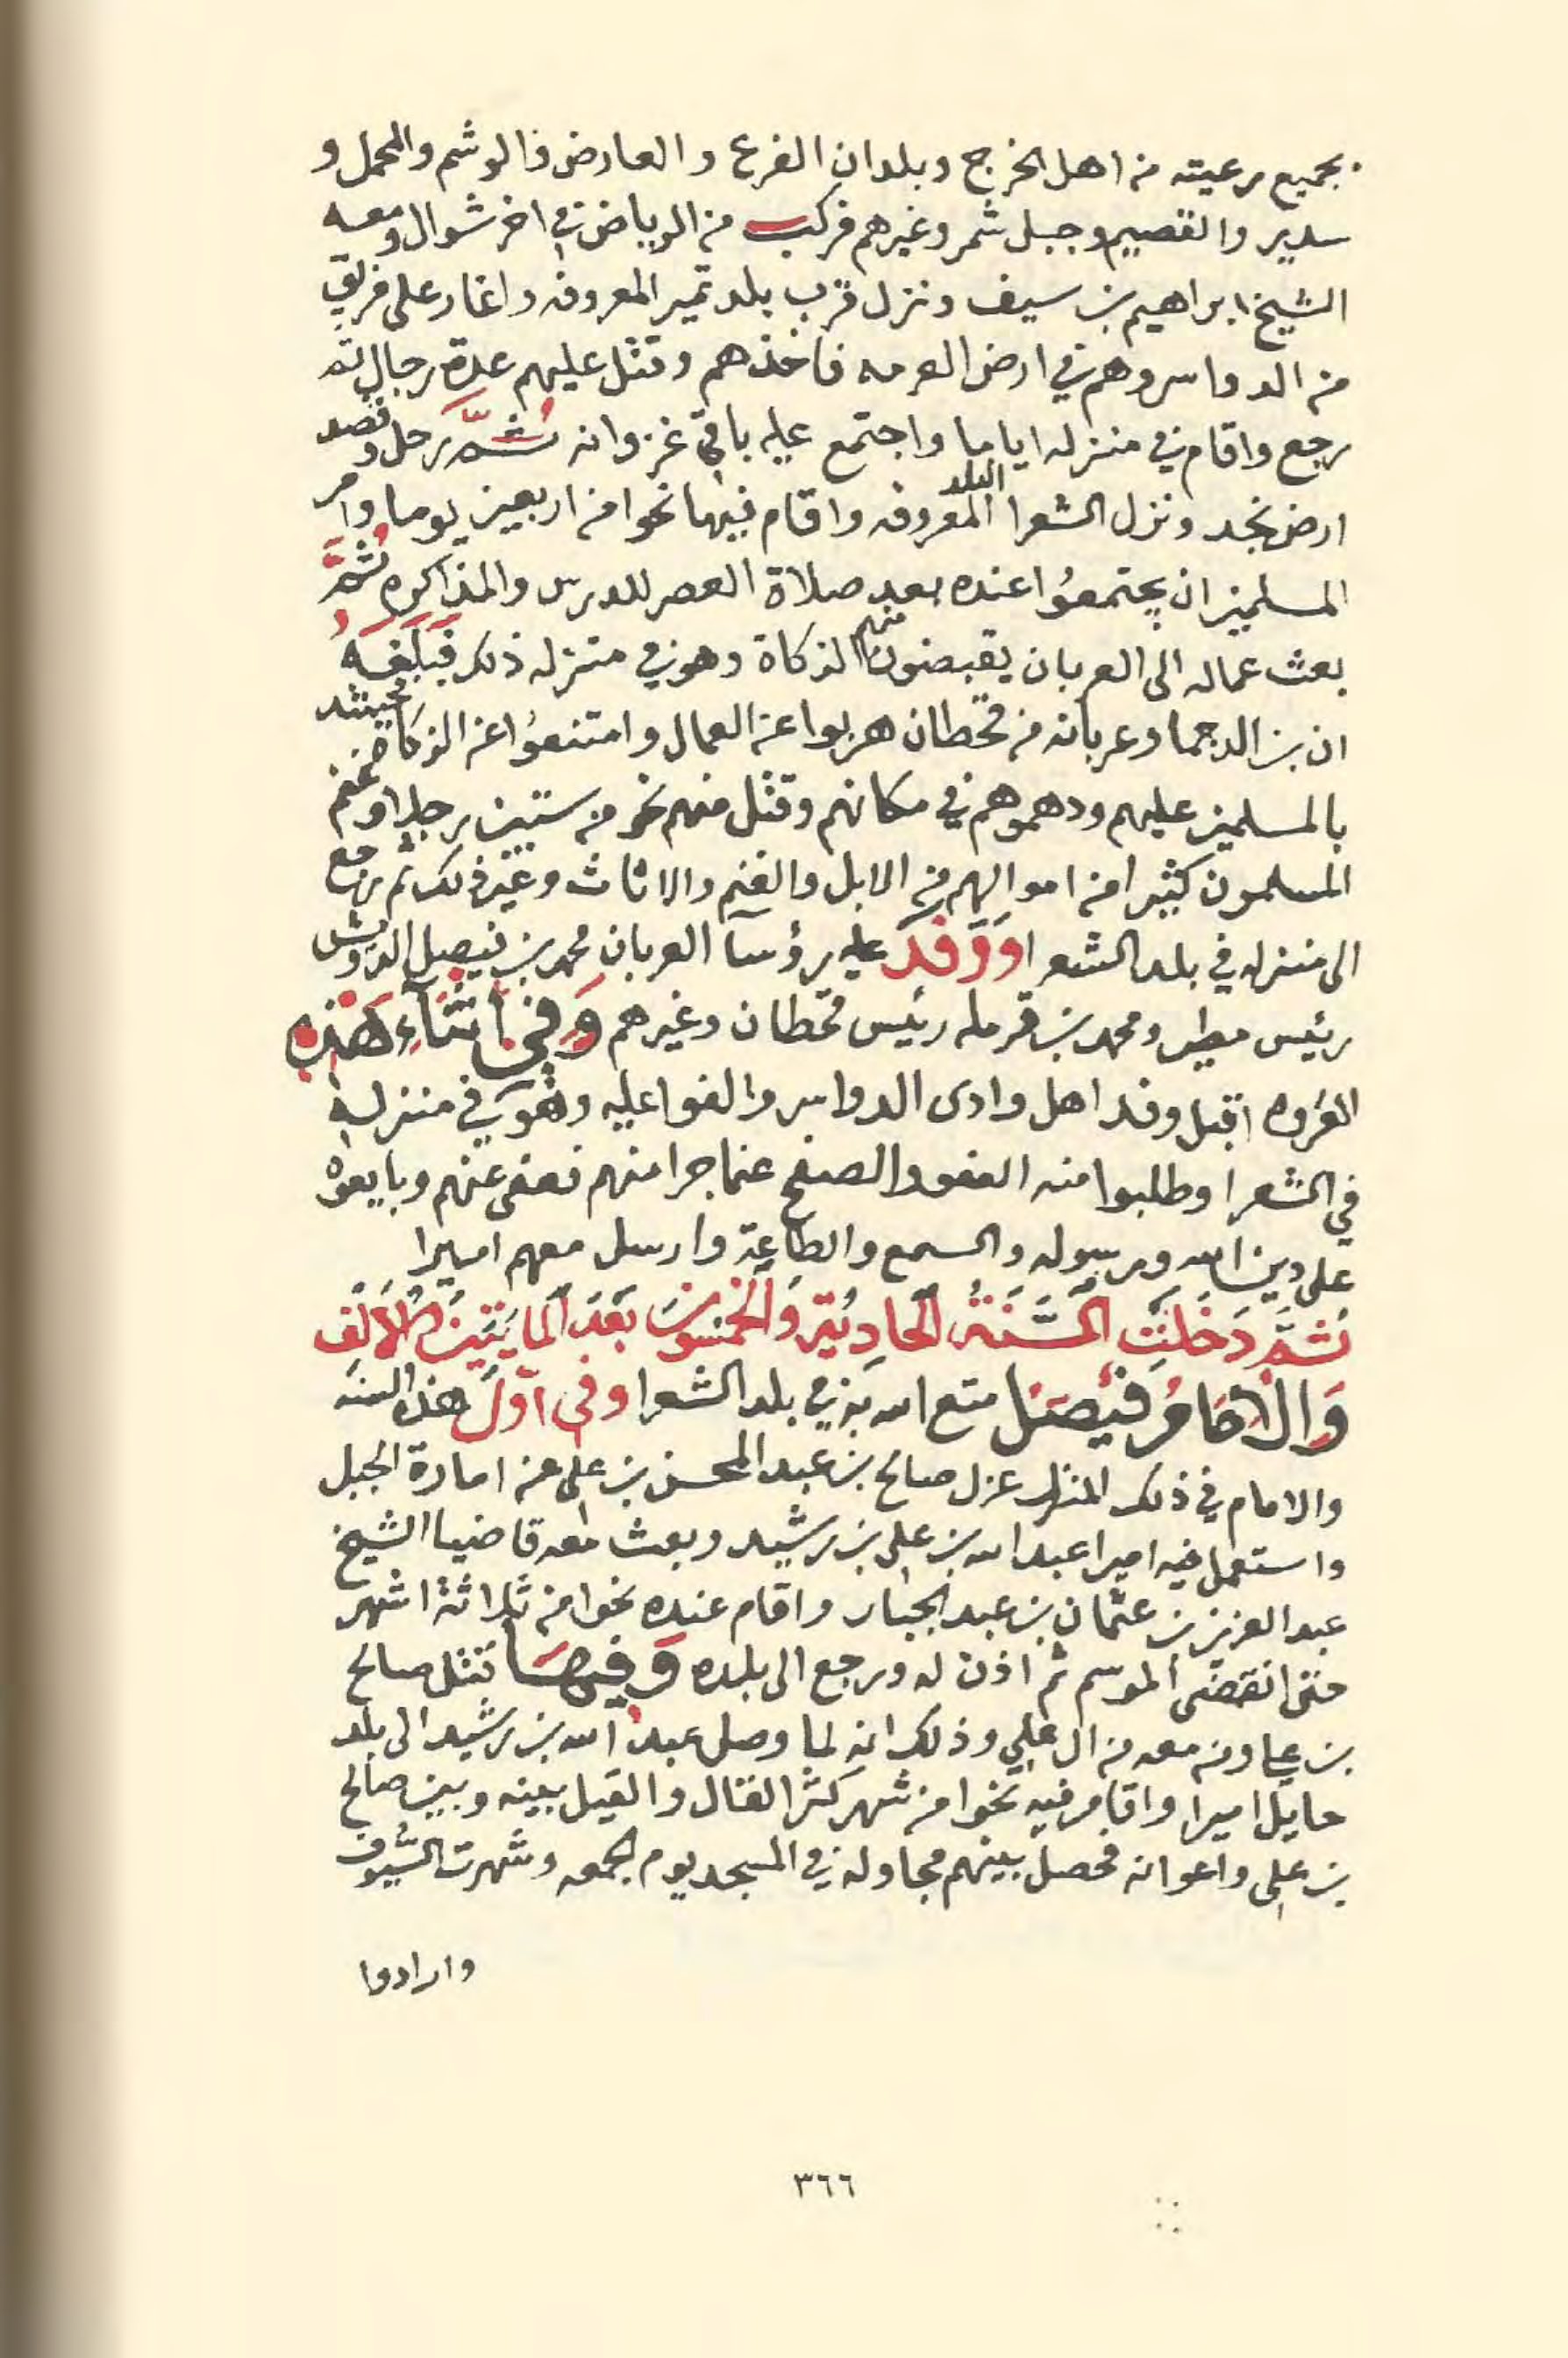 بجميع رعيته من اهل الخرج وبلدان الفرع والعارض والوشم والمحمل و
سدير والقصيم وجبل شمر وغيرهم فركب من الرياض في اخر شوال ومعه
الشيخ ابراهيم بن سيف ونزل قرب بلد تمير المعروفه واغار على فريق
من الدواسر وهم في ارض العرمه فاخذهم وقتل عليهم عدة رجال ثم
رجع واقام في منزله اياما واجتمع عليه باقي غزوانه ثُمَّ رحل وقصد
ارض نجد ونزل الشعرا البلد المعروفه واقام فيها نحوا من اربعين يوما وامر
المسلمين ان يجتمعُوا عنده بعد صلاة العصر للدرس والمذاكره ثُمَّ
بعث عماله الى العربان يقبضون منهم الزكاة وهو في منزله ذلك فَبَلَغَهُ
ان بن الدجما وعربانه من قحطان هربوا عن العمال وامتنعوُا عن الزكاة فحينئذ
بالمسلمين عليهم ودهموهم في مكانهم وقتل منهم نحو من ستين رجلا وغنم
المسلمون كثيرا من اموالهم من الابل والغنم والاثاث وغير ذلك ثم رجع
الى منزله في بلد الشعرا وَوَفَدَ عليه رؤسآ العربان محمد بن فيصل الدويش
رئيس مطير ومحمد بن قرمله رئيس قحطان وغيرهم وَفي اَثنَآءِ هَذِه
الغزوه اقبل وفد اهل وادى الدواسر والفوا عليه وهُوَ في منزله
في الشعرا وطلبوا منه العفو والصفح عما جرا منهم فعفى عنهم وبايعوه
على دين الله ورسوله والسمع والطاعة وارسل معهم اميرا
ثمَّ دَخَلَتِ السَّنَةُ الحَاديَة وَالخمسُونَ بَعْدَ المايَتَينَ وَالاَلْف
وَالاِمَامُ فَيصَل متع الله به في بلد الشعرا وفي اَوّل هذه السنه
والامام في ذلك المنزل عزل صالح بن عبد المحسن بن علي عن امارة الجبل
واستعمل فيه اميرا عبد الله بن علي بن رشيد وبعث معه قاضيا الشيخ
عبد العزيز بن عثمان بن عبد الجبار واقام عنده نحوا من ثلاثة اشهر
حتى انقضى الموسم ثم اذن له ورجع الى بلده وَفِيهَا قتل صالح
بن علي ومن معه من ال علي وذلك انه لما وصل عبد الله بن رشيد الى بلد
حايل اميرا واقام فيه نحوا من شهر كثر القال والقيل بينه وبين صالح
بن علي واعوانه فحصل بينهم مجاوله في المسجد يوم الجمعه وشهرت السُّيُوف
وارادوا
٣٦٦